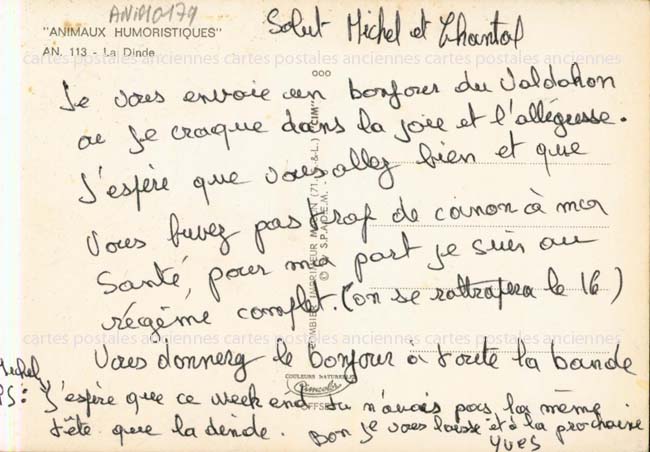 ANIMO179
"ANIMAUX HUMORISTIQUES"
AN. 113 - La Dinde
Salut Michel et Chantal
cartes postales anciennes cartes postales anciennes cartes postales anciennes
Je vous envoie un bonjour du Valdahon
ou je craque dans la joie et l'allégresse.
J'espère que vous allez bien et que
vous buvez pas trop de canon à ma
santé, pour ma part je suis au
régime complet. (on se rattrapera le 16)
cartes postales anciennes cartes postales anciennes cartes postales anciennes
Vous donnerez le bonjour à toute la bande
Michel
PS: J'espère que ce week end tu n'avais pas la même
tête que la dinde. Bon je vous laisse et à la prochaine
Yves
COMBIER IMPRIMEUR MACON (71. S.-&-L.) "CIM"
© by S.P.A.D.E.M.
COULEURS NATURELLES
Cimcolor
OFFSET